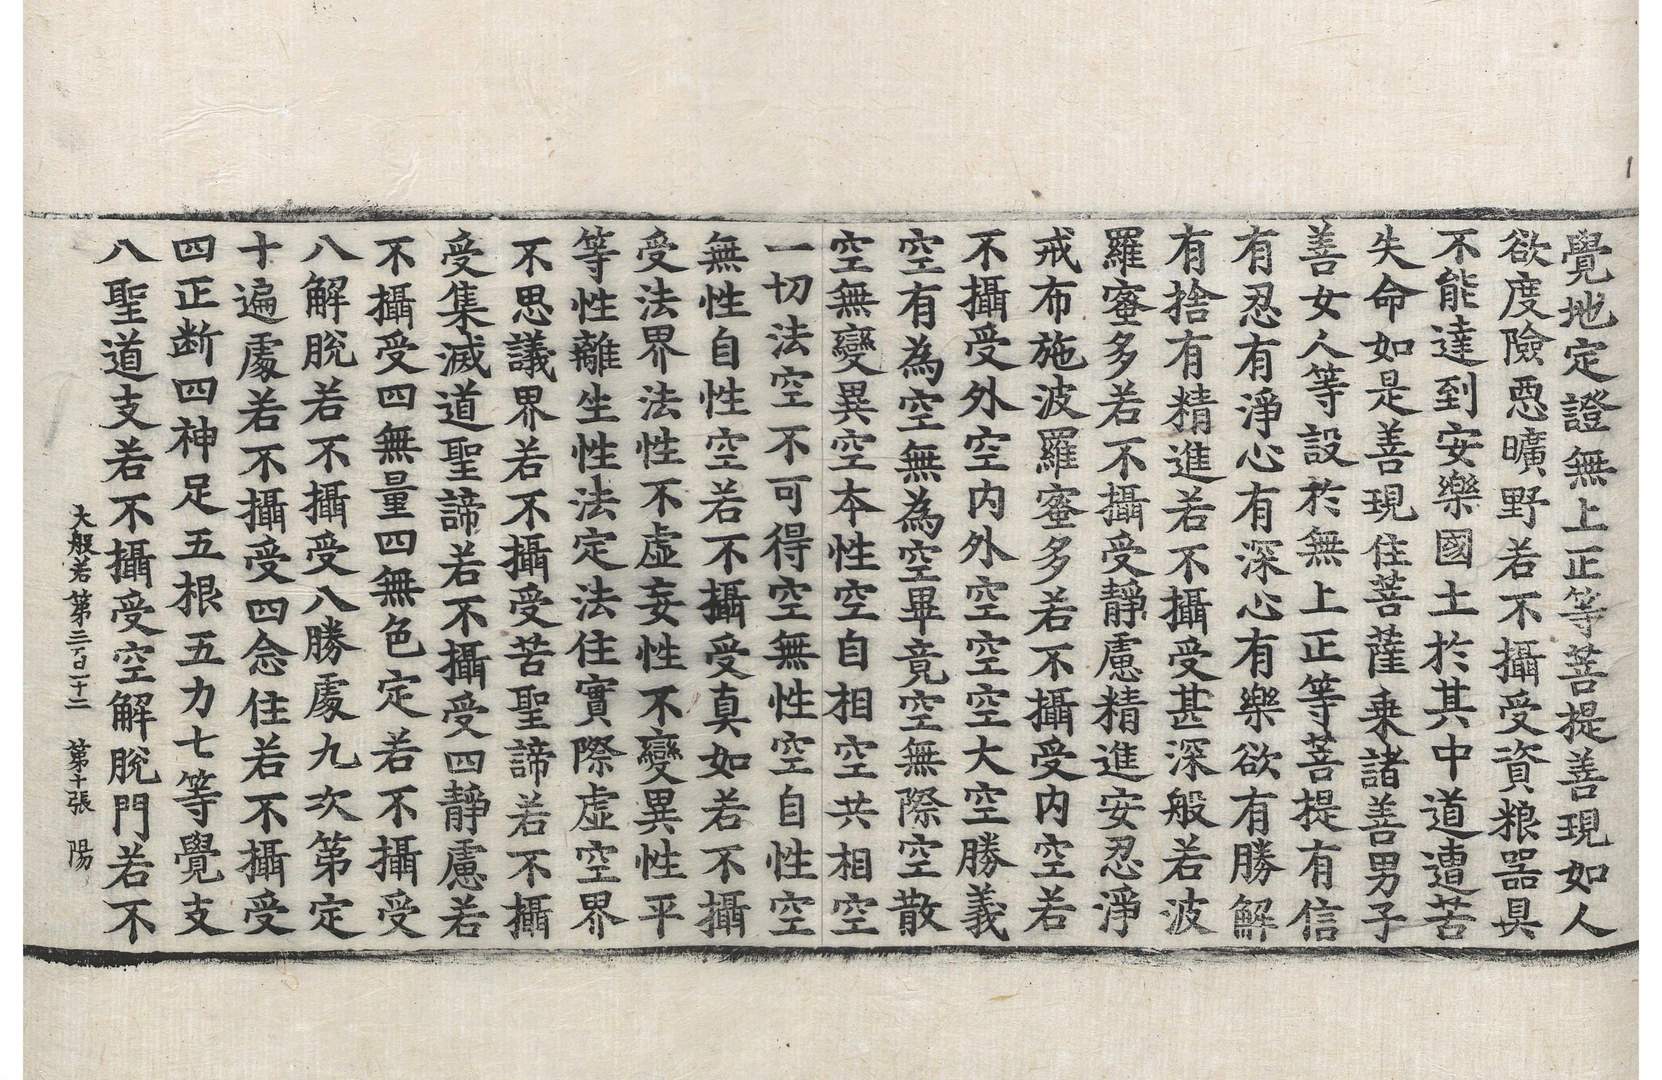 覺地定證無上正等菩提善現如人
欲度險惡曠野若不攝受資粮器具
不能達到安樂國土於其中道遭苦
失命如是善現住菩薩乗諸善男子
善女人等設於無上正等菩提有信
有忍有淨心有深心有樂欲有勝解
有捨有精進若不攝受甚深般若波
羅蜜多若不攝受靜慮精進安忍淨
戒布施波羅蜜多若不攝受内空若
不攝受外空内外空空空大空勝義
空有為空無為空畢竟空無際空散
空無變異空本性空自相空共相空
一切法空不可得空無性空自性空
無性自性空若不攝受真如若不攝
受法界法性不虛妄性不變異性平
等性離生性法定法住實際虛空界
不思議界若不攝受苦聖諦若不攝
受集滅道聖諦若不攝受四靜慮若
不攝受四無量四無色定若不攝受
八解脫若不攝受八勝處九次第定
十遍處若不攝受四念住若不攝受
四正断四神足五根五力七等覺支
八聖道支若不攝受空解脫門若不
大般若第三百一十二 第十張 陽